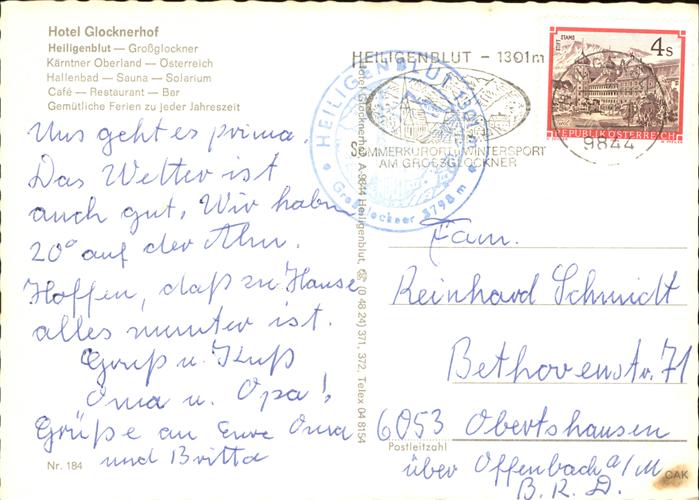 Hotel Glocknerhof
Heiligenblut — Großglockner
Kärntner Oberland — Österreich
Hallenbad — Sauna — Solarium
Café — Restaurant — Bar
Gemütliche Ferien zu jeder Jahreszeit
Uns geht es prima.
Das Wetter ist
auch gut, Wir haben
20° auf der Alm.
Hoffen, daß zu Hause
alles munter ist.
Gruß u. Kuß
Oma u. Opa!
Grüße an Eure Oma
und Britta
Nr. 184
Hotel Glocknerhof, A-9844 Heiligenblut, (0 48 24) 371, 372, Telex 04 8154
HEILIGENBLUT – 1301m
SOMMERKURORT WINTERSPORT
AM GROSZGLOCKNER
HEILIGENBLUT 1301 m
Großglockner 3798 m
STIFT STAMS
4 S
REPUBLIK ÖSTERREICH
9844
Fam.
Reinhard Schmidt
Bethovenstr. 71
6053 Obertshausen
Postleitzahl
über Offenbach a/M
B. R. D.
OAK